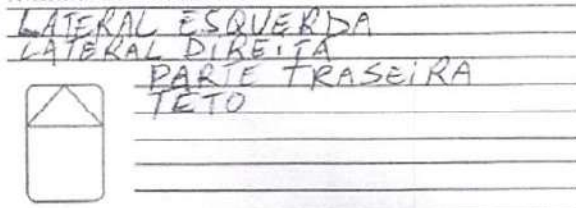 LATERAL ESQUERDA
LATERAL DIREITA
PARTE TRASEIRA
TETO